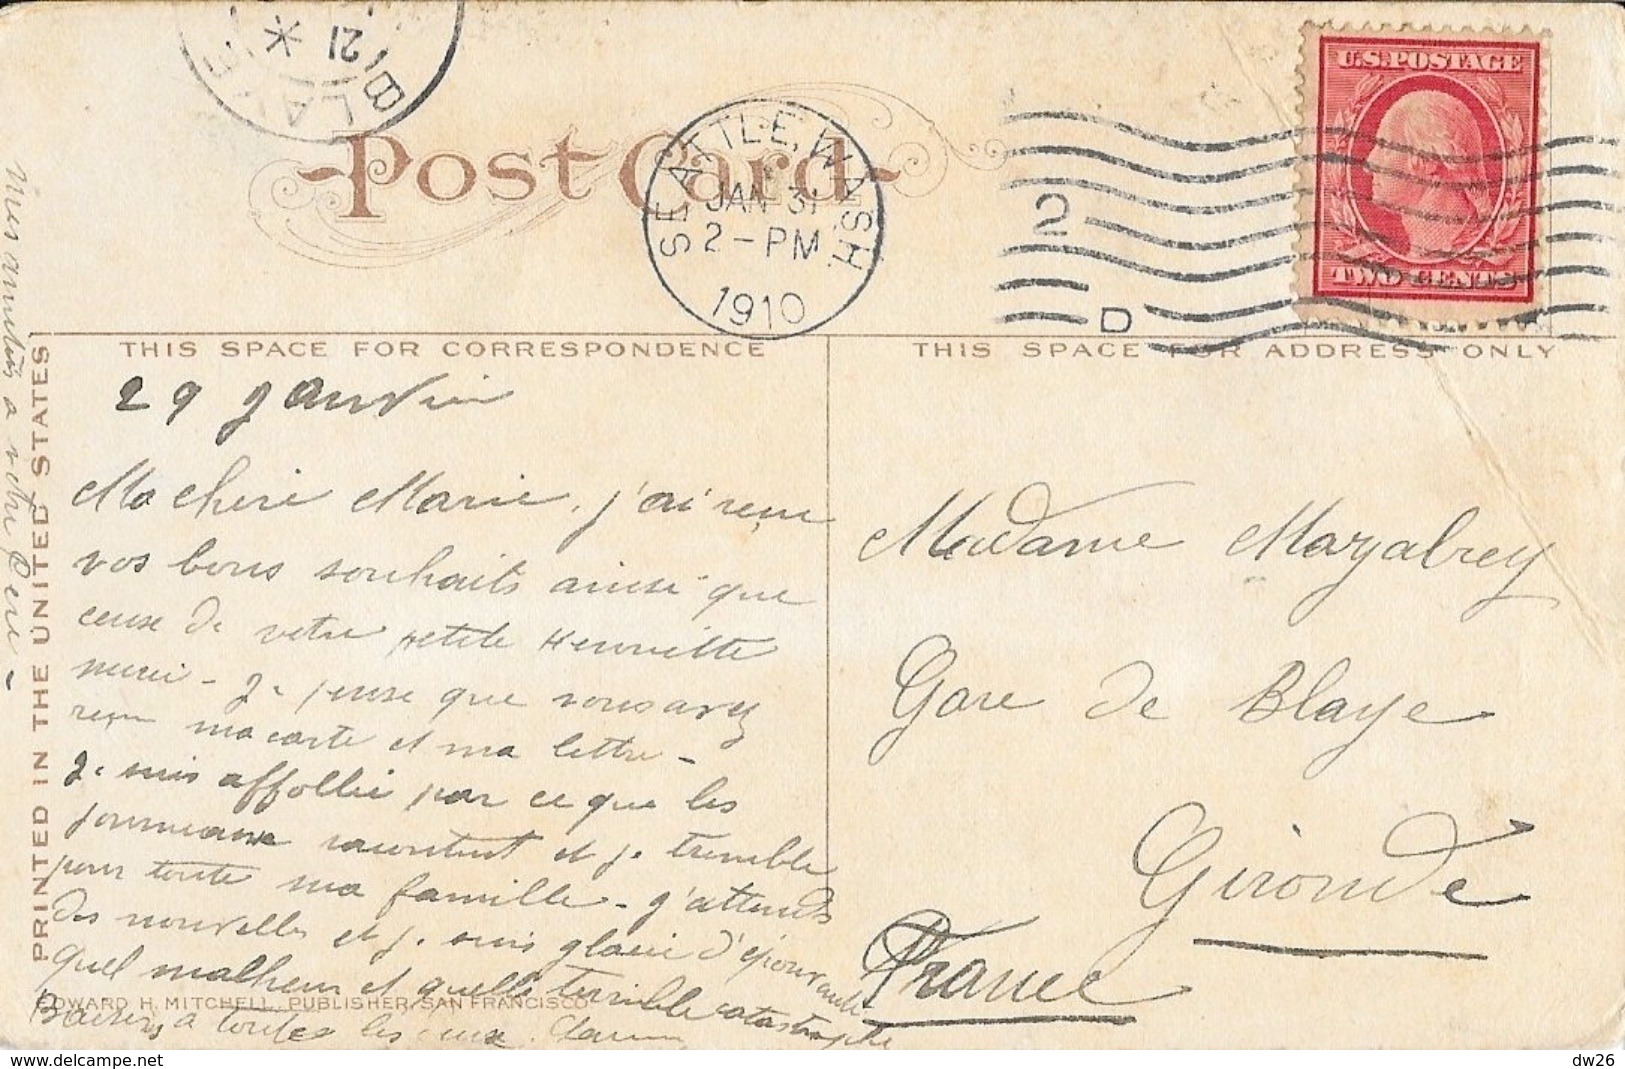 BLAYE
21
Post Card
SEATTLE, WASH.
JAN 31
2-PM
1910
2
D
U.S. POSTAGE
TWO CENTS
THIS SPACE FOR CORRESPONDENCE
THIS SPACE FOR ADDRESS ONLY
29 Janvier
Ma chère Marie, j'ai reçu
vos bons souhaits ainsi que
ceux de votre petite Henriette
merci - Je pense que vous avez
reçu ma carte et ma lettre -
Je suis affollée par ce que les
journeaux racontent et je tremble
pour toute ma famille - J'attends
des nouvelles et je suis glacée d'épouvante
quel malheur et quelle terrible catastrophe
Baisers à toutes les
mes amitiés a votre
PRINTED IN THE UNITED STATES
EDWARD H. MITCHELL, PUBLISHER, SAN FRANCISCO
Madame Mazalrey
Gare de Blaye
Gironde
France
dw26